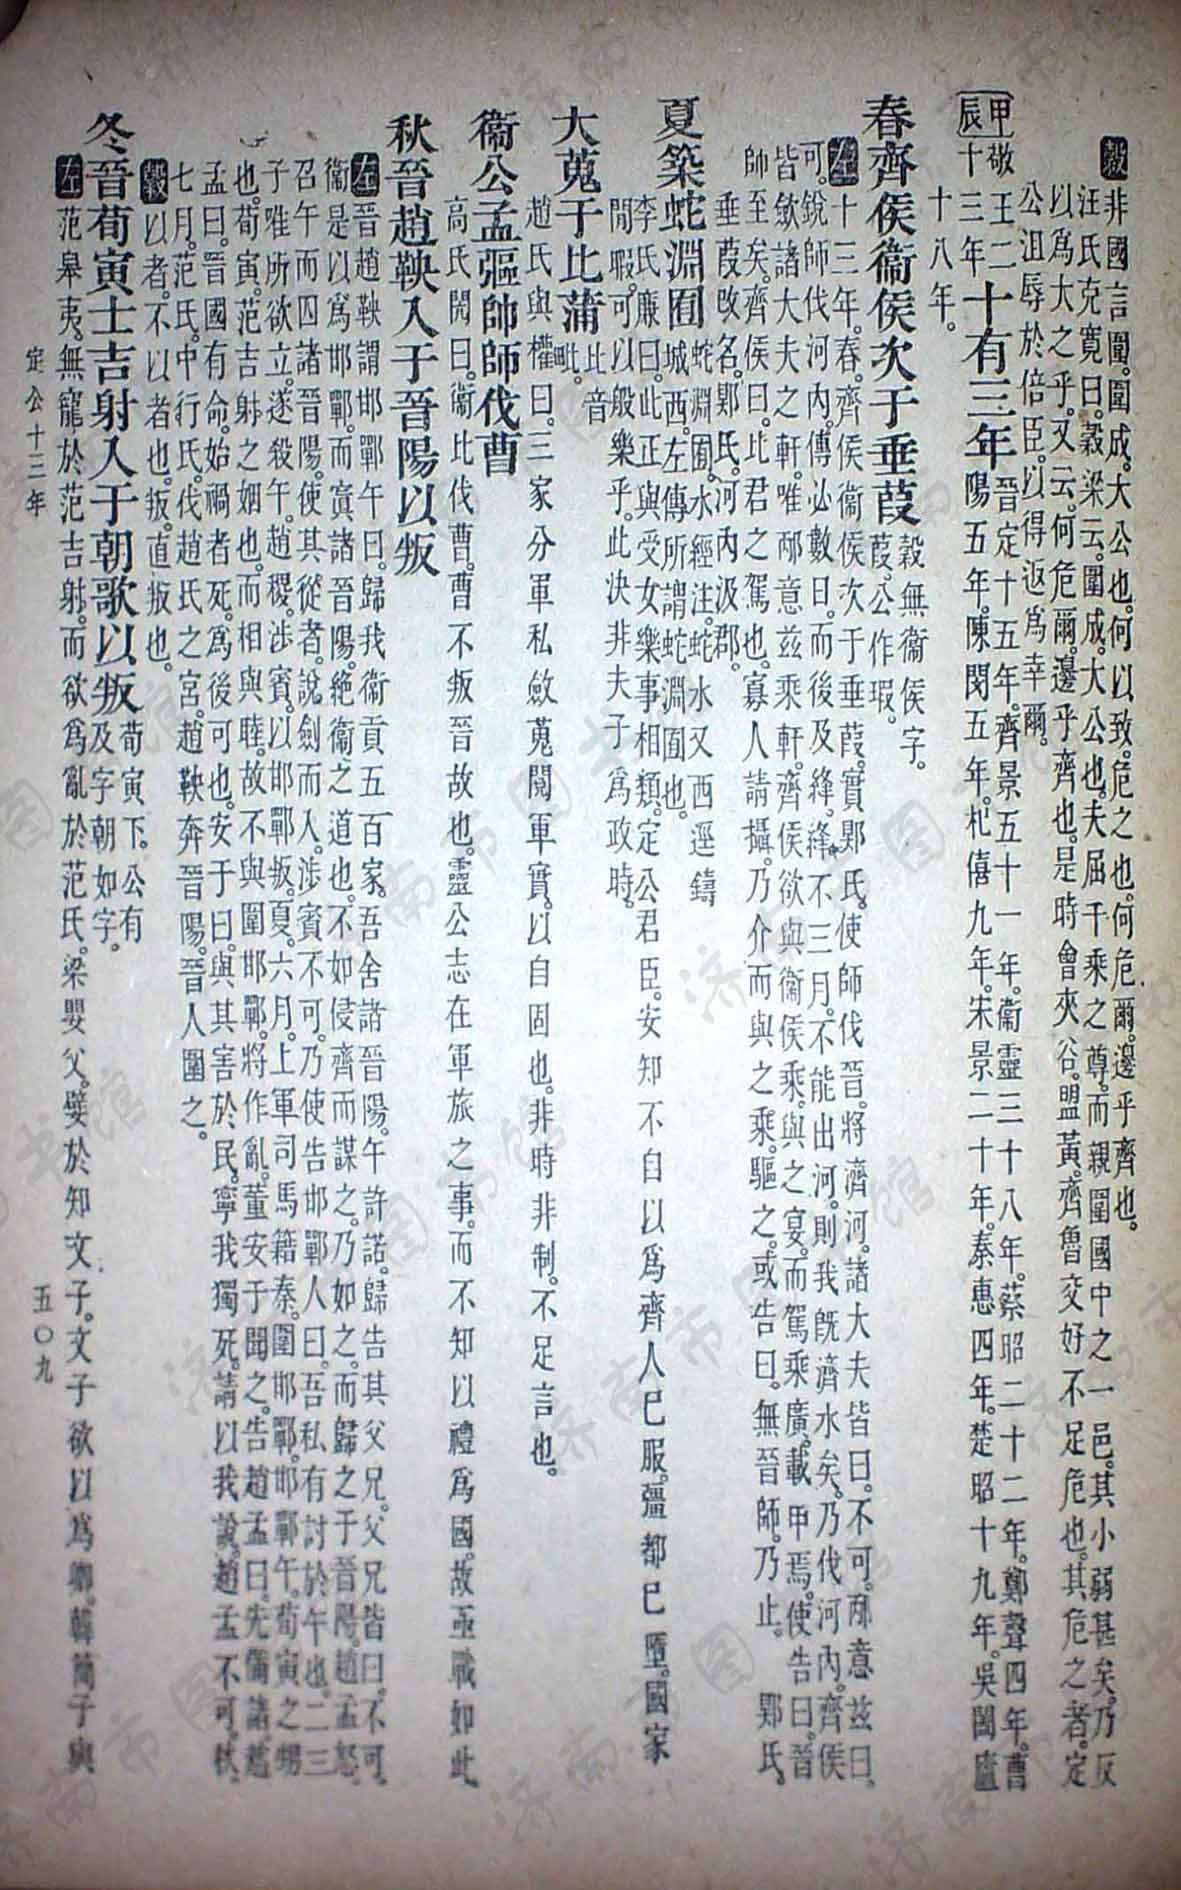 穀非國言圍。圍成。大公也。何以致。危之也。何危爾。邊乎齊也。
汪氏克寬曰。穀梁云。圍成。大公也。夫屈千乘之尊。而親圍國中之一邑。其小弱甚矣。乃反
以爲大之乎。又云。何危爾。邊乎齊也。是時會夾谷。盟黃。齊魯交好。不足危也。其危之者。定
公沮辱於倍臣。以得返爲幸爾。
甲辰
敬王二十三年
十有三年
晉定十五年。齊景五十一年。衞靈三十八年。蔡昭二十二年。鄭聲四年。曹
陽五年。陳閔五年。杞僖九年。宋景二十年。秦惠四年。楚昭十九年。吳闔廬
十八年。
春齊侯衞侯次于垂葭
穀無衞侯字。
葭。公作瑕。
左十三年。春。齊侯衞侯次于垂葭。實郹氏。使師伐晉。將濟河。諸大夫皆曰。不可。邴意茲曰。
可。銳師伐河內。傳必數日。而後及絳。絳不三月。不能出河。則我旣濟水矣。乃伐河內。齊侯
皆斂諸大夫之軒。唯邴意茲乘軒。齊侯欲與衞侯乘。與之宴。而駕乘廣。載甲焉。使告曰。晉
師至矣。齊侯曰。比君之駕也。寡人請攝。乃介而與之乘。驅之。或告曰。無晉師。乃止。 郹氏。
垂葭改名。郹氏。河內汲郡。
夏築蛇淵囿
蛇淵囿。水經注。蛇水又西逕鑄
城西。左傳所謂蛇淵囿也。
李氏廉曰。此正與受女樂事相類。定公君臣。安知不自以爲齊人已服。彊都已墮。國家
閒暇。可以般樂乎。此決非夫子爲政時。
大蒐于比蒲
比音
毗。
趙氏與權曰。三家分軍私斂。蒐閱軍實。以自固也。非時非制。不足言也。
衞公孟彄帥師伐曹
高氏閌曰。衞比伐曹。曹不叛晉故也。靈公志在軍旅之事。而不知以禮爲國。故亟戰如此。
秋晉趙鞅入于晉陽以叛
左晉趙鞅謂邯鄲午曰。歸我衞貢五百家。吾舍諸晉陽。午許諾。歸告其父兄。父兄皆曰。不可。
衞是以爲邯鄲。而寘諸晉陽。絶衞之道也。不如侵齊而謀之。乃如之。而歸之于晉陽。趙孟怒。
召午而囚諸晉陽。使其從者。說劍而入。涉賓不可。乃使告邯鄲人曰。吾私有討於午也。二三
子唯所欲立。遂殺午。趙稷。涉賓。以邯鄲叛。夏。六月。上軍司馬籍秦。圍邯鄲。邯鄲午。荀寅之甥
也。荀寅。范吉射之姻也。而相與睦。故不與圍邯鄲。將作亂。董安于聞之。告趙孟曰。先備諸。趙
孟曰。晉國有命。始禍者死。爲後可也。安于曰。與其害於民。寧我獨死。請以我說。趙孟不可。秋。
七月。范氏。中行氏。伐趙氏之宮。趙鞅奔晉陽。晉人圍之。
穀以者。不以者也。叛。直叛也。
冬晉荀寅士吉射入于朝歌以叛
荀寅下。公有
及字。朝如字。
左范皋夷。無寵於范吉射。而欲爲亂於范氏。梁嬰父。嬖於知文子。文子欲以爲卿。韓簡子與
定公十三年
五〇九